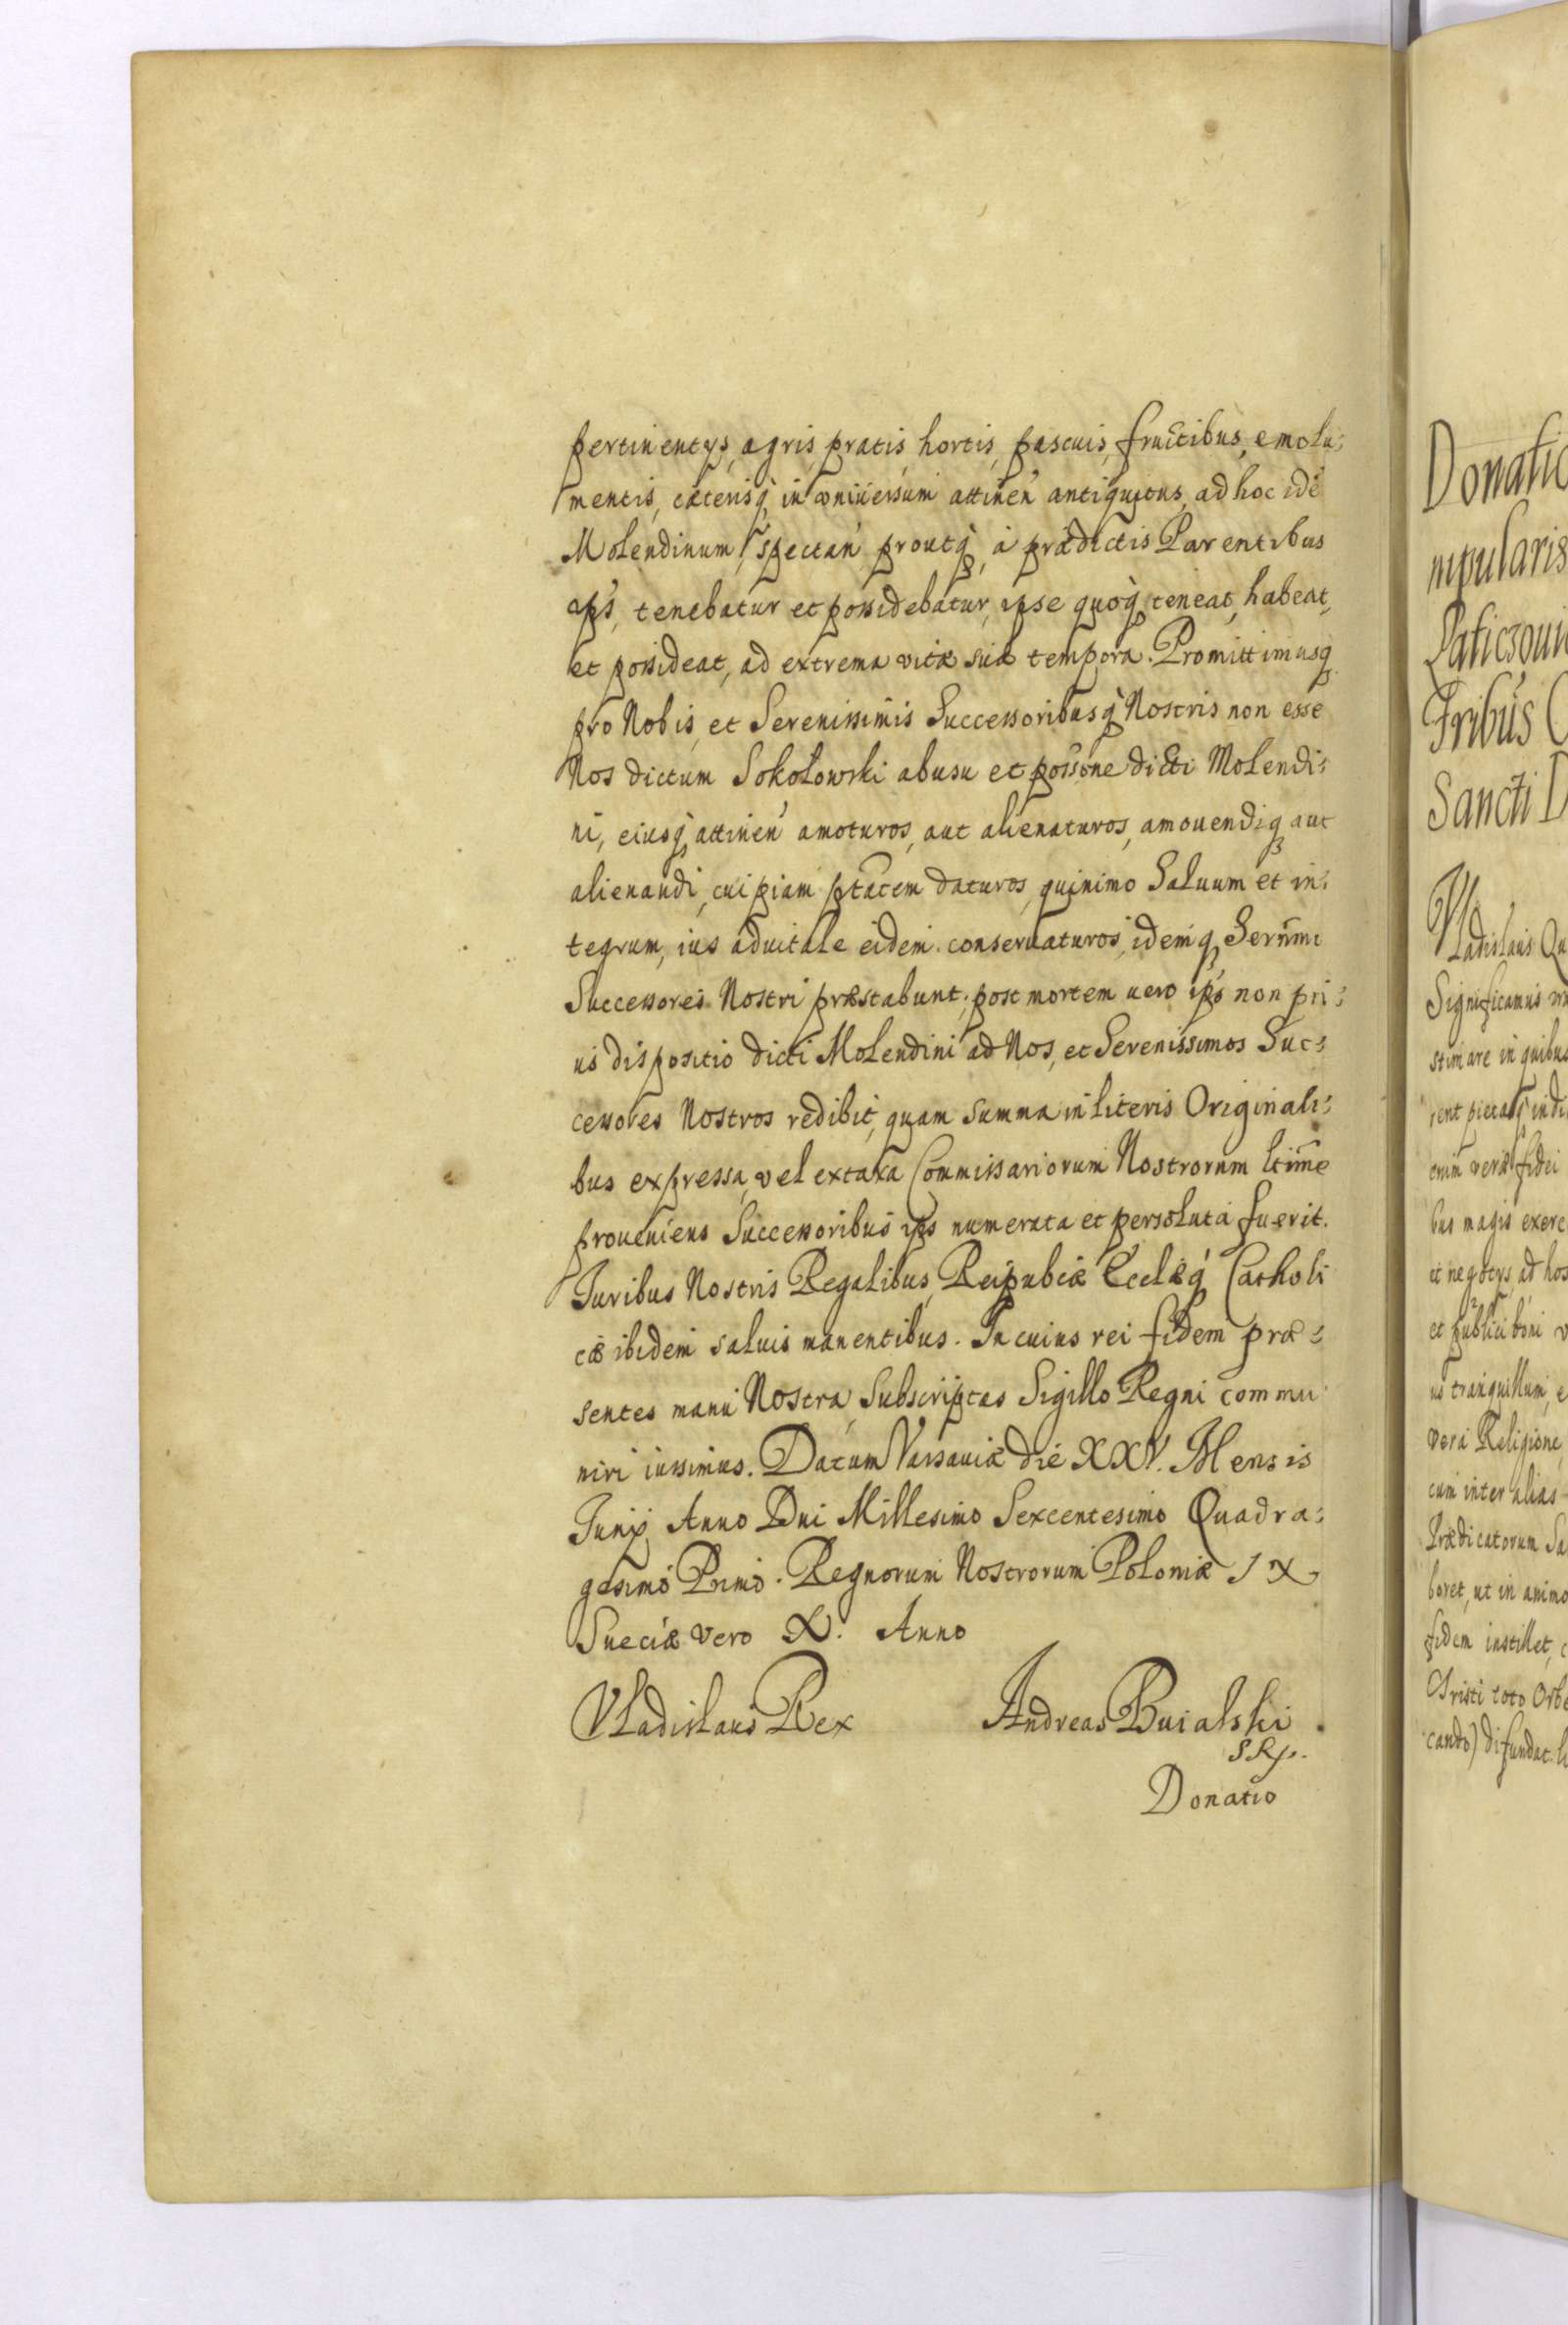 pertinentys, agris, pratis, hortis, pascuis, fructibus, emolu:
mentis, cæterisq, in vniuersum attinen antiquitus, ad hoc idé
Molendinum, spectan proutq, á prædictis Parentibus
ips, tenebatur et possidebatur, ipse quoq, teneat, habeat,
et possideat, ad extrema vitæ suæ tempora. Promittimusq
pro Nobis, et Serenissimis Successoribusq Nostris non esse
Nos dictum Sokołowski abusu et possone dicti Molendi:
ni, eiusq, attinen amoturos, aut alienaturos, amouendiq aut
alienandi, cuipiam ptatem daturos, quinimo Saluum et in:
tegrum, ius aduitale eidem conseruaturos, idemq, Sernmi
Successores Nostri præstabunt; post mortem uero ips non pri:
us dispositio dicti Molendini ad Nos, et Serenissimos Suc:
cessores Nostros redibit, quam summa in literis Originali:
bus expressa, vel extaxa Commissariorum Nostrorum ltime
proueniens Successoribus ips numerata et persoluta fuerit.
Iuribus Nostris Regalibus, Reipubcæ Eccleq Catholi
cæ ibidem saluis manentibus. In cuius rei fidem præ:
sentes manu Nostra, Subscriptas Sigillo Regni commu
niri iussimus. Datum Varsauiæ die XXV. Mensis
Iunij Anno Dni Millesimo Sexcentesimo Quadra:
gesimo Primo. Regnorum Nostrorum Poloniæ IX
Sueciæ vero X. Anno
Vladislaus Rex Andreas Buialski.
SRp.
Donatio
Donatio
mpularis
Laticzoui
Fribus
Sancti D
Vladislaus Qu
Significamus
stimare in quibus
rent pietas indi
enim veræ fidei
bus magis exerc
et negotys, ad hos
et publici boni v
us tranquillum, e
vera Religione,
cum inter alias
Prædicatorum Sa
boret, ut in animo
fidem instillet, c
Christi toto Orbe
cando) difundat.